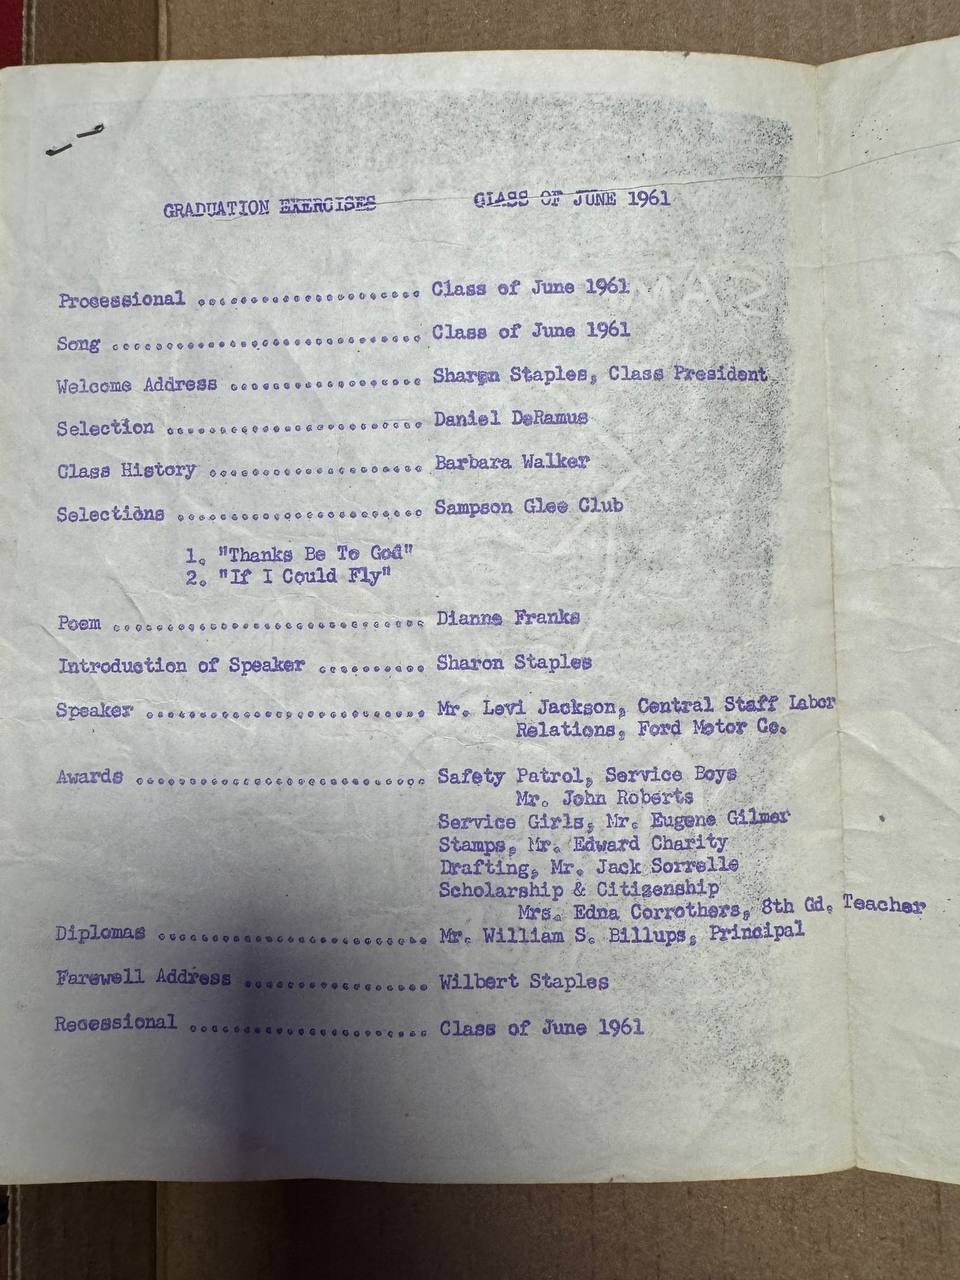 GRADUATION EXERCISES CLASS OF JUNE 1961
Processional ..................... Class of June 1961
Song ............................. Class of June 1961
Welcome Address .................. Sharon Staples, Class President
Selection ........................ Daniel DeRamus
Class History .................... Barbara Walker
Selections ....................... Sampson Glee Club
1. "Thanks Be To God"
2. "If I Could Fly"
Poem ............................. Dianne Franks
Introduction of Speaker .......... Sharon Staples
Speaker .......................... Mr. Levi Jackson, Central Staff Labor
Relations, Ford Motor Co.
Awards ........................... Safety Patrol, Service Boys
Mr. John Roberts
Service Girls, Mr. Eugene Gilmer
Stamps, Mr. Edward Charity
Drafting, Mr. Jack Sorrelle
Scholarship & Citizenship
Mrs. Edna Corrothers, 8th Gd. Teacher
Diplomas ......................... Mr. William S. Billups, Principal
Farewell Address ................. Wilbert Staples
Recessional ...................... Class of June 1961